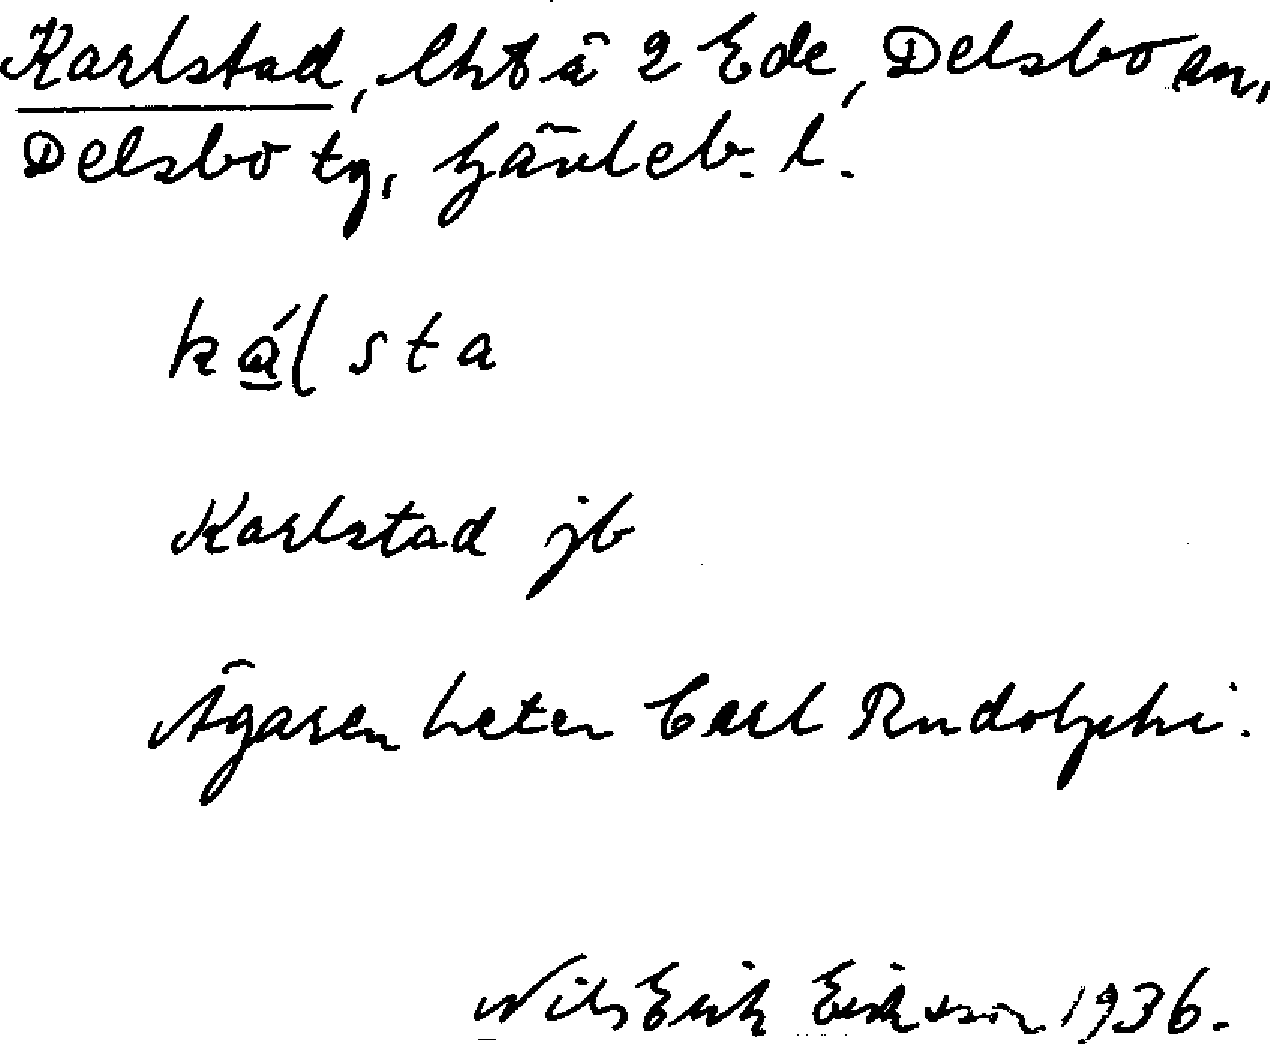 Karlstad, lht å 2 Ede, Delsbo sn,
Delsbo tg, Gävleb. l.
kálsta
Karlstad jb
Ägaren heter Carl Rudolphi.
Nils Erik Eriksson 1936.